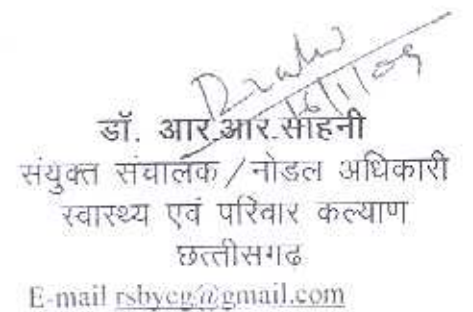 16/1/09
डॉ. आर.आर.साहनी
संयुक्त संचालक / नोडल अधिकारी
स्वास्थ्य एवं परिवार कल्याण
छत्तीसगढ
E-mail rsbycg@gmail.com